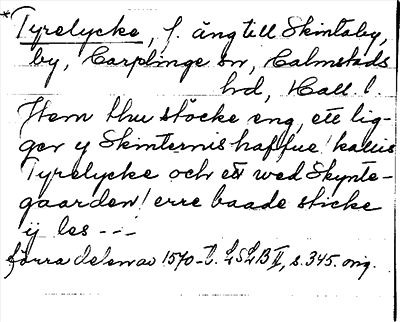 *Tyrelycke, f. äng till Skintaby,
by, Carplinge sn, Halmstads
hd, Hall. l.
Item thu støcke eng, ett lig-
ger y Skinternis haffue / kallis
Tyrelycke och ett wed Skynte-
gaarden / erre baade sticke
ij les ---
förra delen av 1570-t. LSLB II, s. 345. orig.